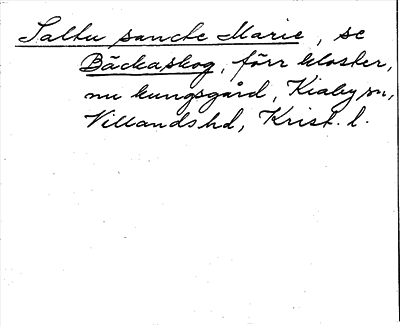 Saltu sancte Marie, se
Bäckaskog, förr kloster,
nu kungsgård, Kiaby sn,
Villands hd, Krist. l.